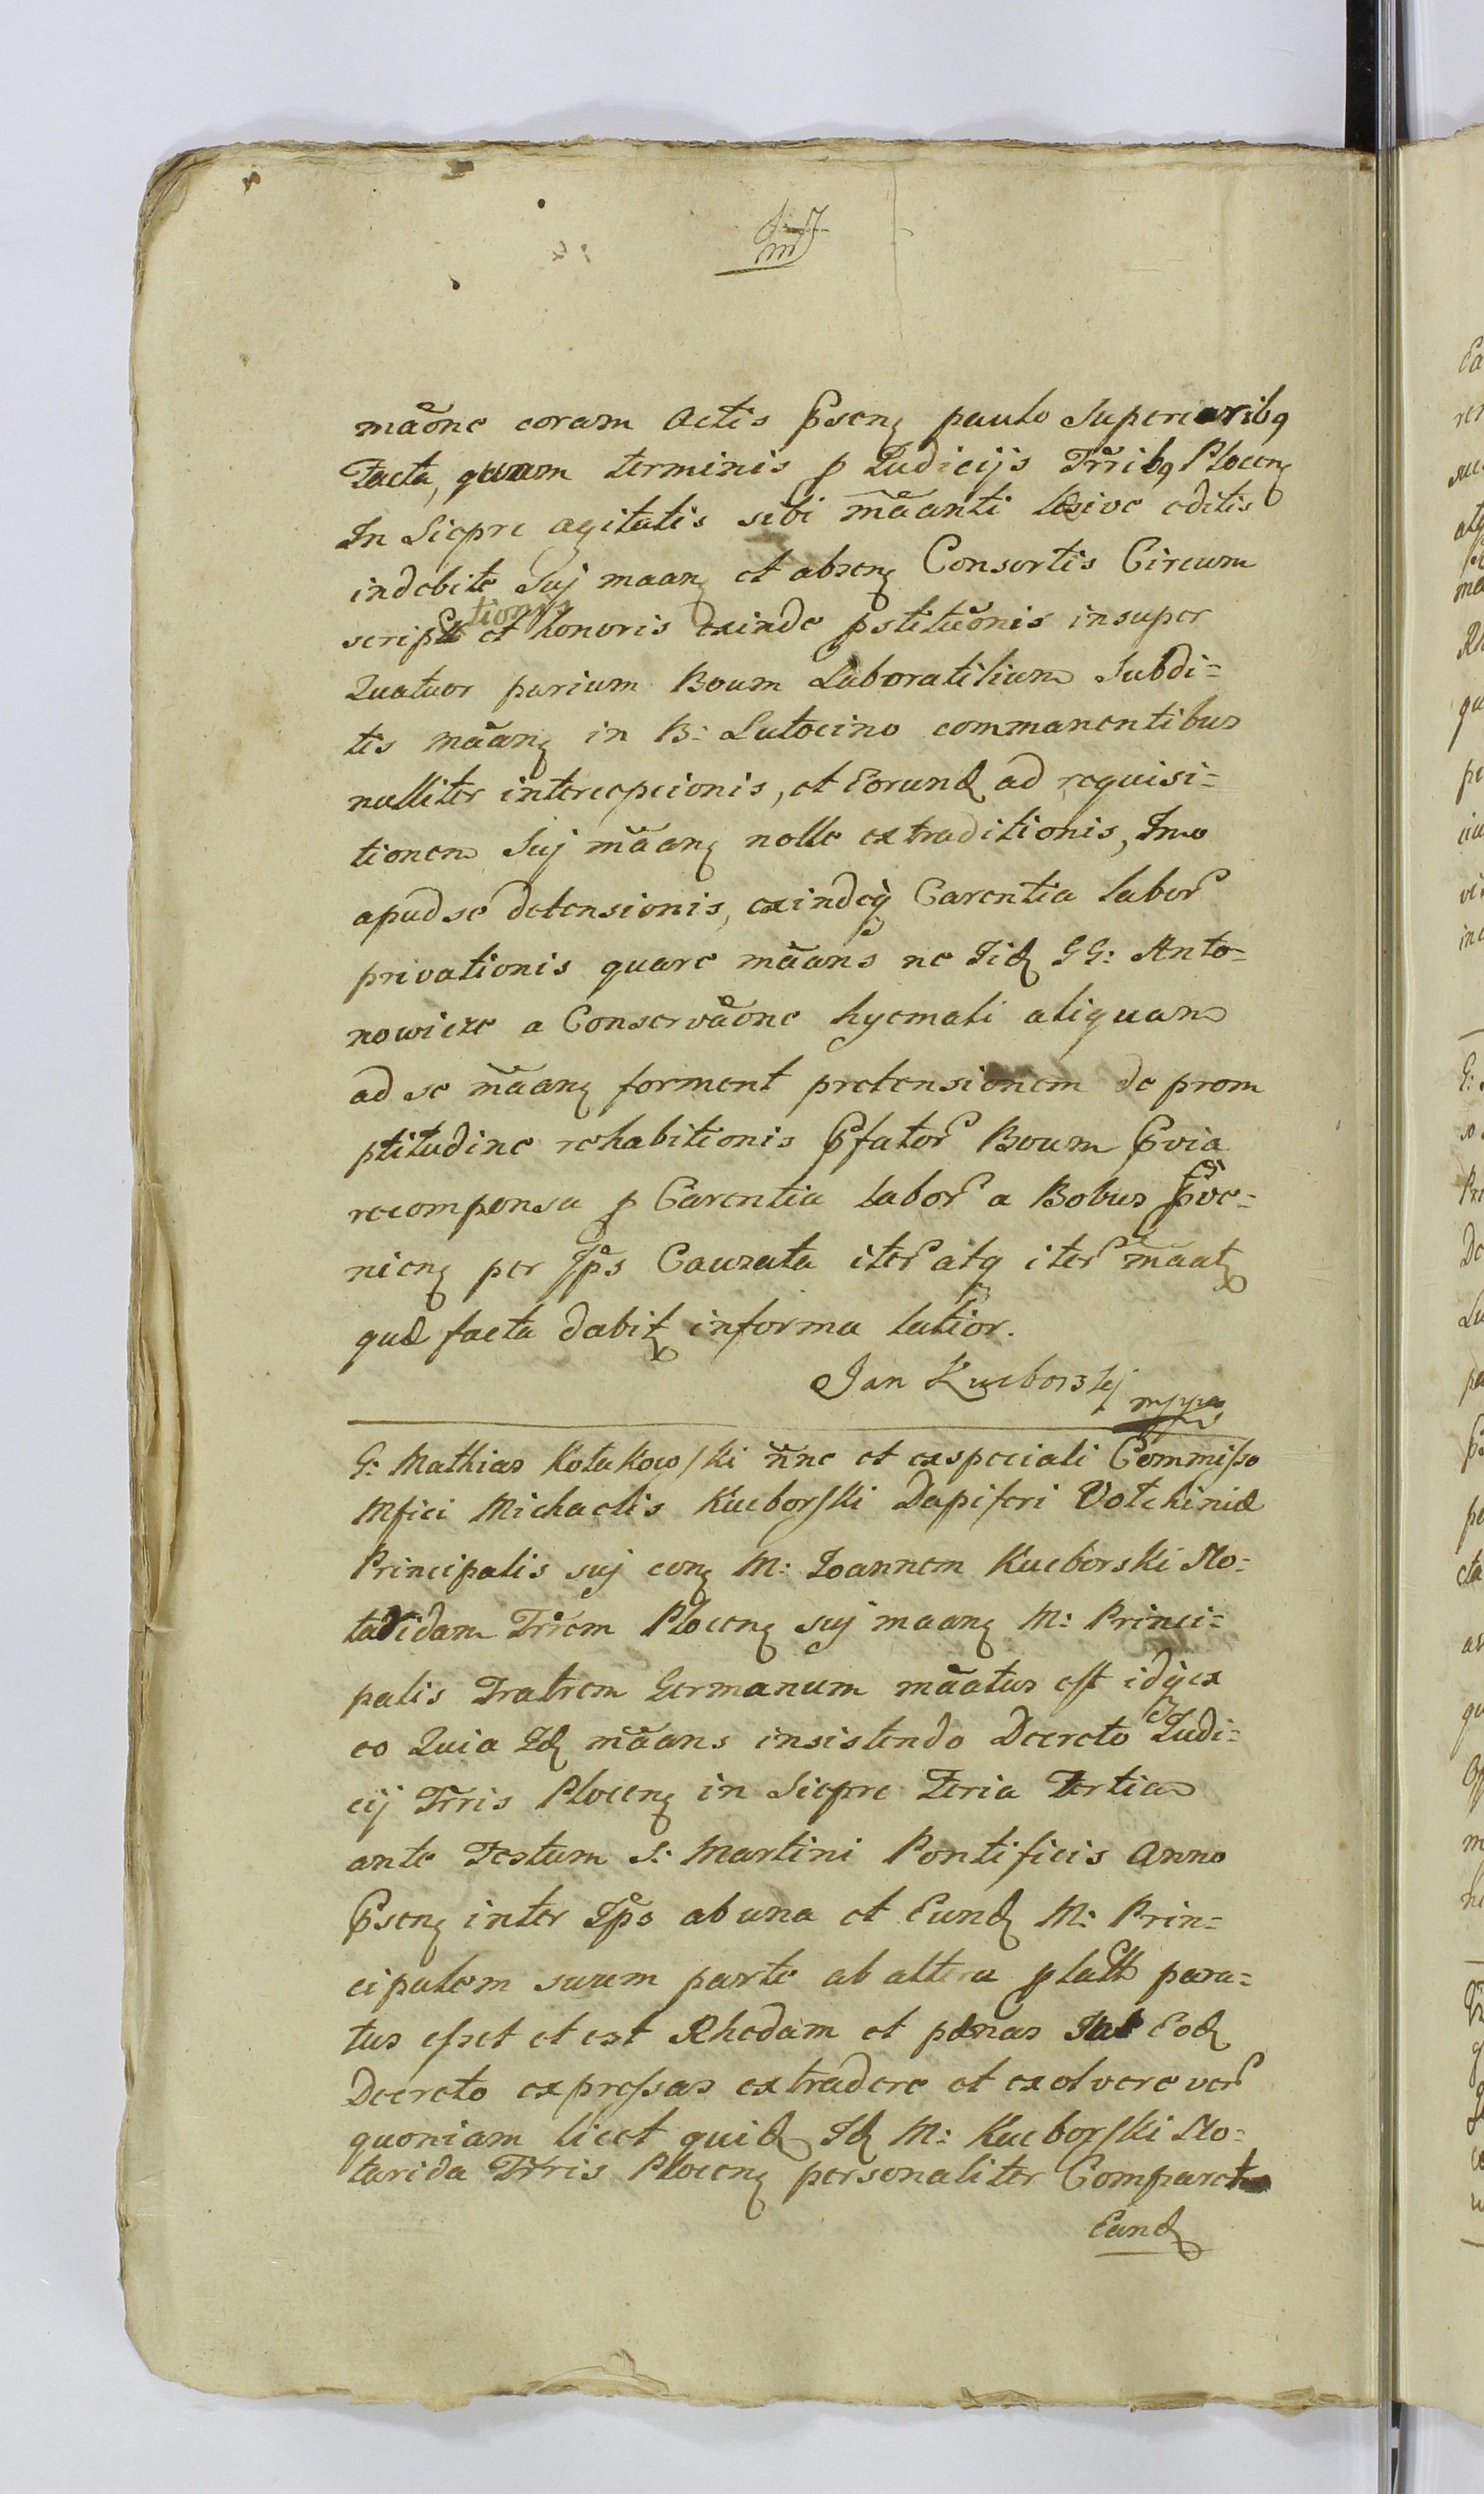 mãone coram Actis Pseng paulo Superioribq
Facta, quam terminis p Judicijs Trribq Ploceng
In Siepre agitatis sibi mãanti læsive editis
indebite Suj maang et abseng Consortis Circum
scriptionis et honoris exinde pstituõnis insuper
Quatuor parium Boum Laboratilium Subdi=
tis mãang in B: Lutocino commanentibus
nulliter intercepcionis, et Eorund ad requisi=
tionem Suj mãang nolle extraditionis, Imo
apud se detensionis, exindeq Carentia labor
privationis quare mãans ne Iid GG: Anto=
nowicze a Conservãone hyemali aliquam
ad se mãang forment pretensionem de prom
ptitudine rehabitionis Pfator Boum Pvia
recompensa p Carentia labor a Bobus Pve=
nieng per Ips Causata iter atq iter mãat
quæ facta dabit informa latior.
Jan Kucborskj mppa
G: Mathias Kołakowski ñne et ex speciali Commisso
Mfici Michaelis Kucborski Dapiferi Volchiniæ
Principalis suj cong M: Joannem Kucborski No=
taridam Trrem Ploceng suj maang M: Princi=
palis Fratrem Germanum mãatus est idq ex
eo Quia Id mãans insistendo Decreto Judi=
cij Trris Ploceng in Siepre Feria Tertia
ante Festum S. Martini Pontificis Anno
Pseng inter Ips ab una et Eund M: Prin=
cipalem suum parte ab altera plato para=
tus esset et est Rhedam et pænas Eod
Decreto expressas extradere et exolvere ver
quoniam licet quid Id M: Kucborski No=
tarida Trris Ploceng personaliter Comparet
Eund